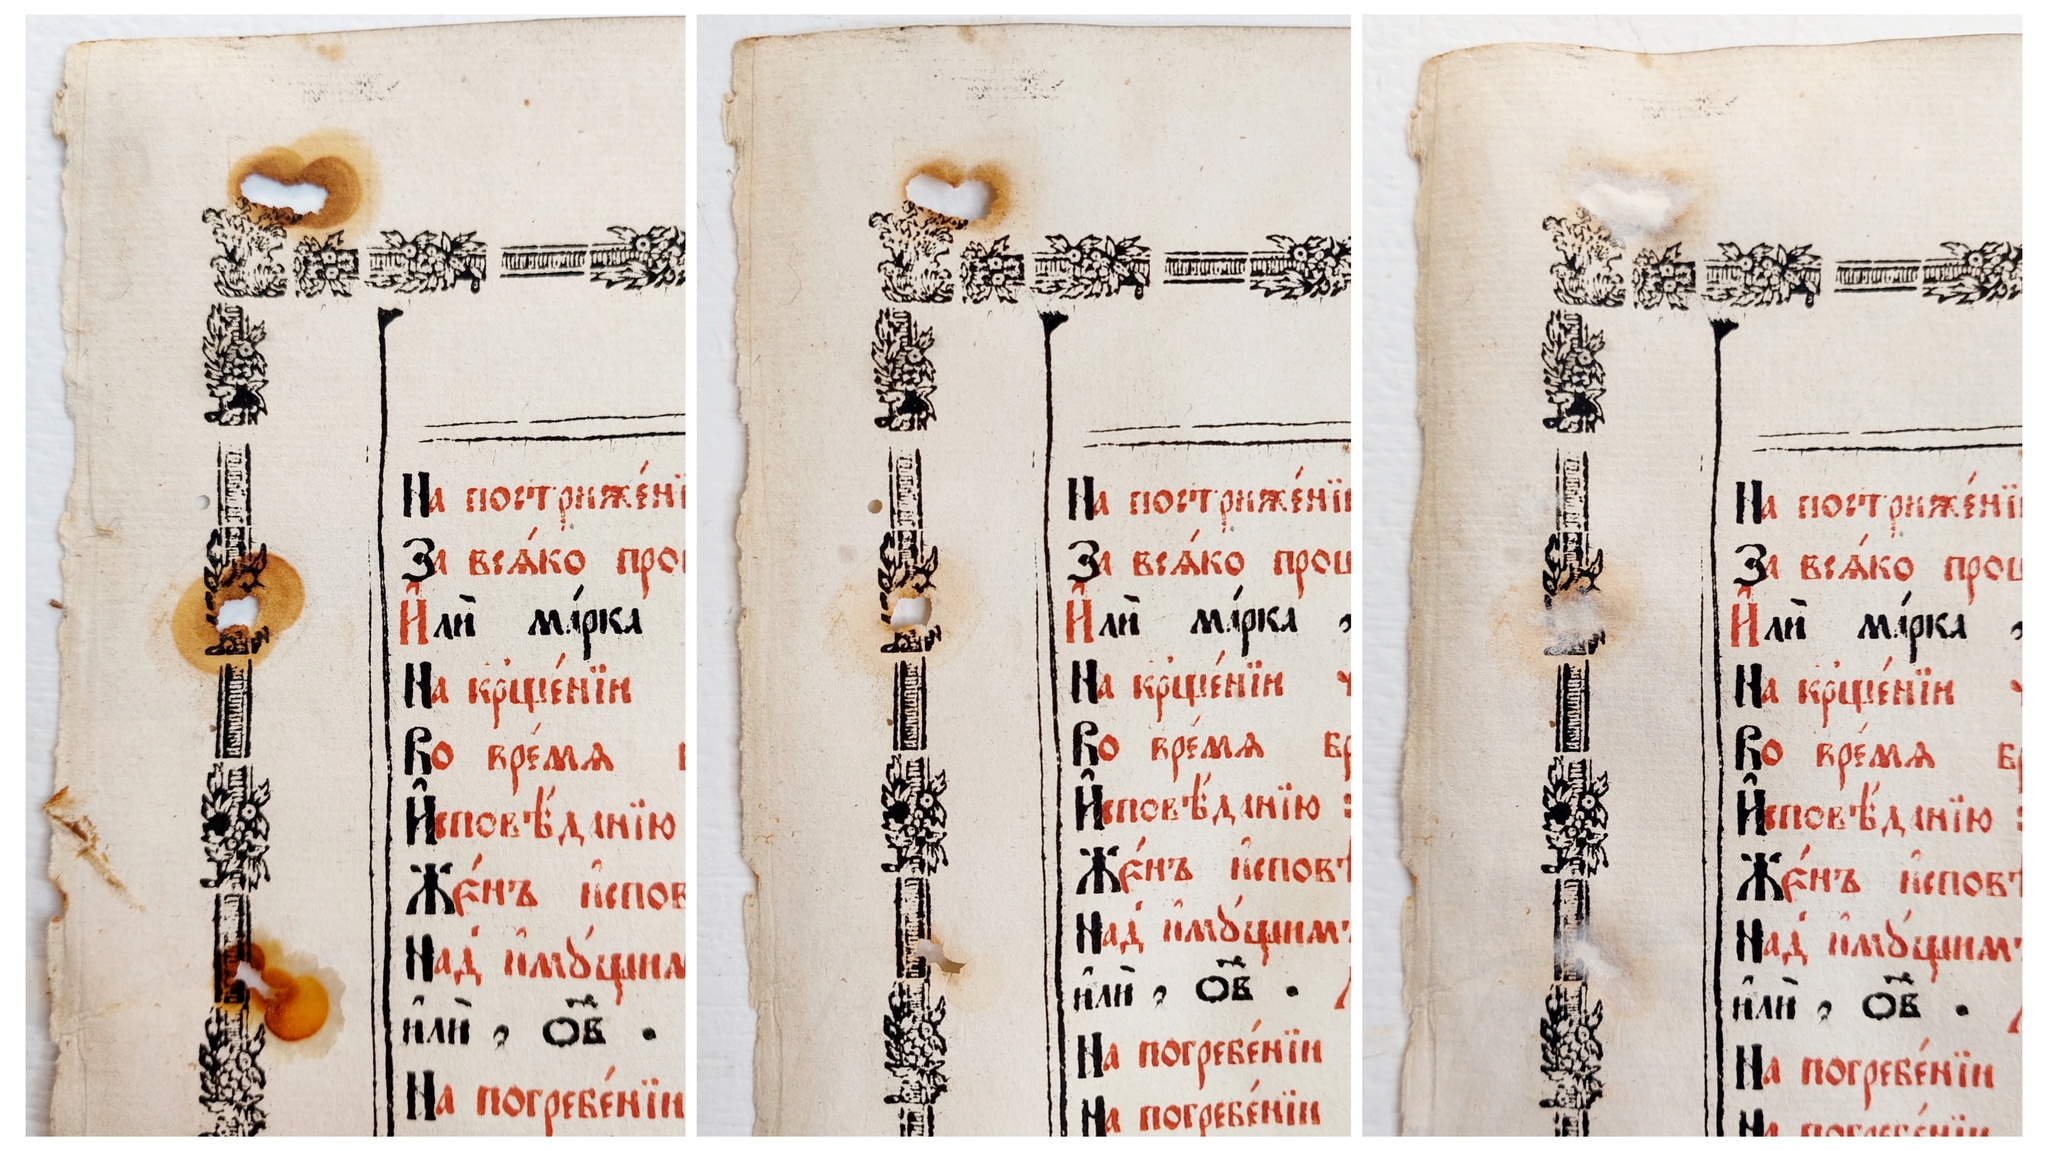 На пострижéнї
За всѧ́ко про
И҆лѝ ма́рка
На крⷭ҇ще́нїи
Во вре́мѧ
И҆сповѣ́данїю
Же́нъ и҆спов
Над̾ и҆мꙋ́щим
и҆лѝ , Ѻв .
На погребе́нїи
На пострижéнї
За всѧ́ко про
И҆лѝ ма́рка ,
На крⷭ҇ще́нїи
Во вре́мѧ
И҆сповѣ́данїю
Же́нъ и҆спов
Над̾ и҆мꙋ́щимъ
и҆лѝ , Ѻв .
На погребе́нїи
На погребе́нїи
На пострижéнї
За всѧ́ко про
И҆лѝ ма́рка ,
На крⷭ҇ще́нїи
Во вре́мѧ
И҆сповѣ́данїю
Же́нъ и҆спов
Над̾ и҆мꙋ́щимъ
и҆лѝ , Ѻв .
На погребе́нїи